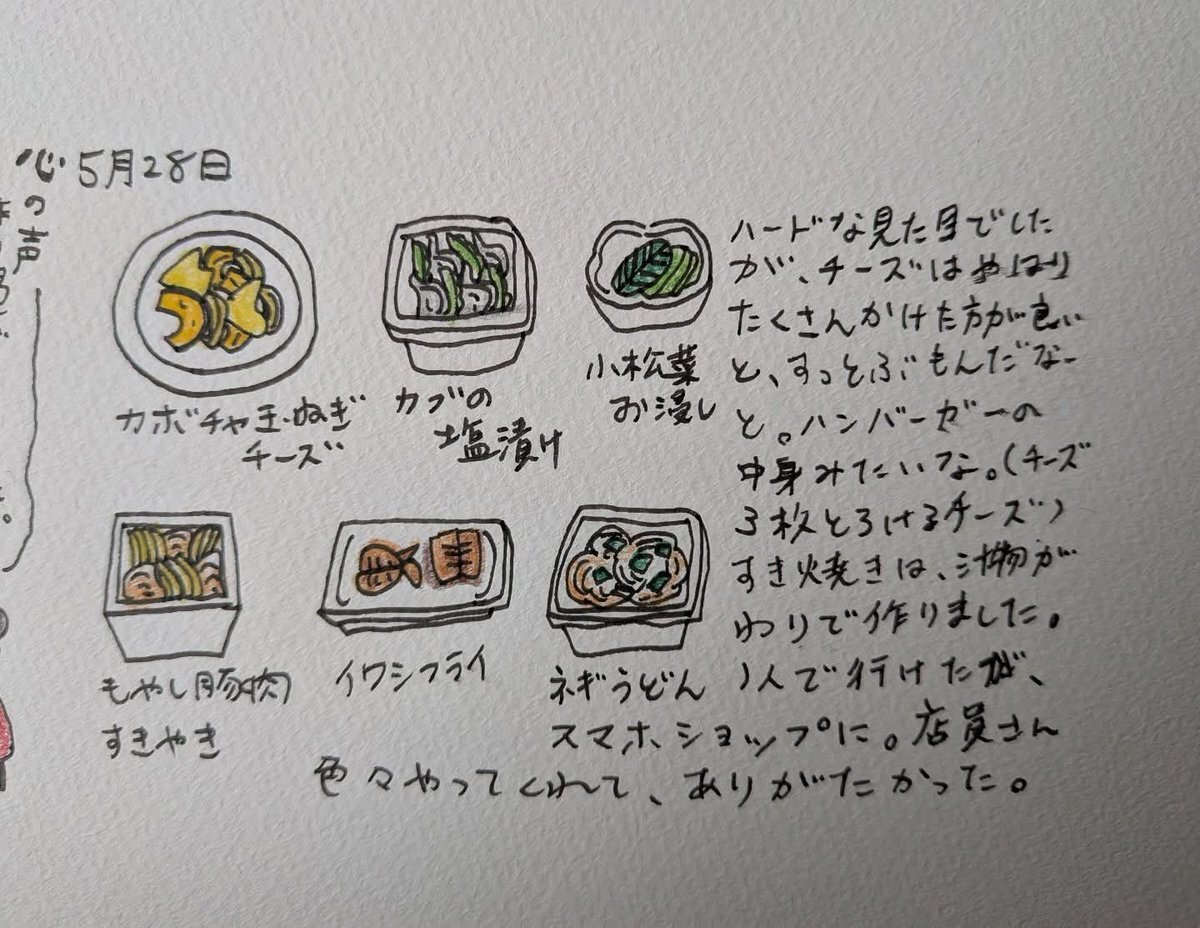 心の声
5月28日
カボチャ玉ねぎ
チーズ
カブの
塩漬け
小松菜
お浸し
もやし豚肉
すきやき
イワシフライ
ネギうどん
ハードな見た目でした
が、チーズはやはり
たくさんかけた方が良い
と、すっとぶもんだなー
と。ハンバーガーの
中身みたいな。(チーズ
3枚とろけるチーズ)
すき焼きは、汁物が
わりで作りました。
1人で行けたが、
スマホショップに。店員さん
色々やってくれて、ありがたかった。